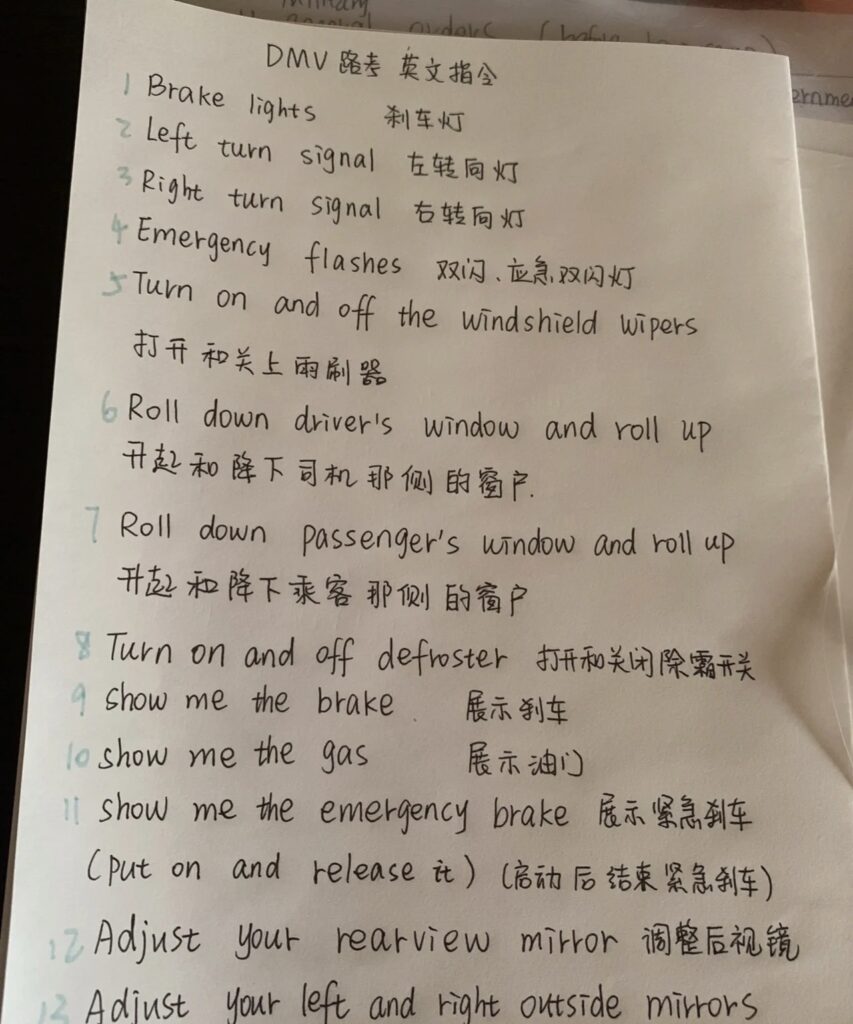 military
general orders (before
ernme
DMV 路考 英文指令
1 Brake lights 刹车灯
2 Left turn signal 左转向灯
3 Right turn signal 右转向灯
4 Emergency flashes 双闪、应急双闪灯
5 Turn on and off the windshield wipers
打开和关上雨刷器
6 Roll down driver's window and roll up
升起和降下司机那侧的窗户.
7 Roll down passenger's window and roll up
升起和降下乘客那侧的窗户
8 Turn on and off defroster 打开和关闭除霜开关
9 show me the brake. 展示刹车
10 show me the gas 展示油门
11 show me the emergency brake 展示紧急刹车
(put on and release it) (启动后结束紧急刹车)
12 Adjust your rearview mirror 调整后视镜
13 Adjust your left and right outside mirrors